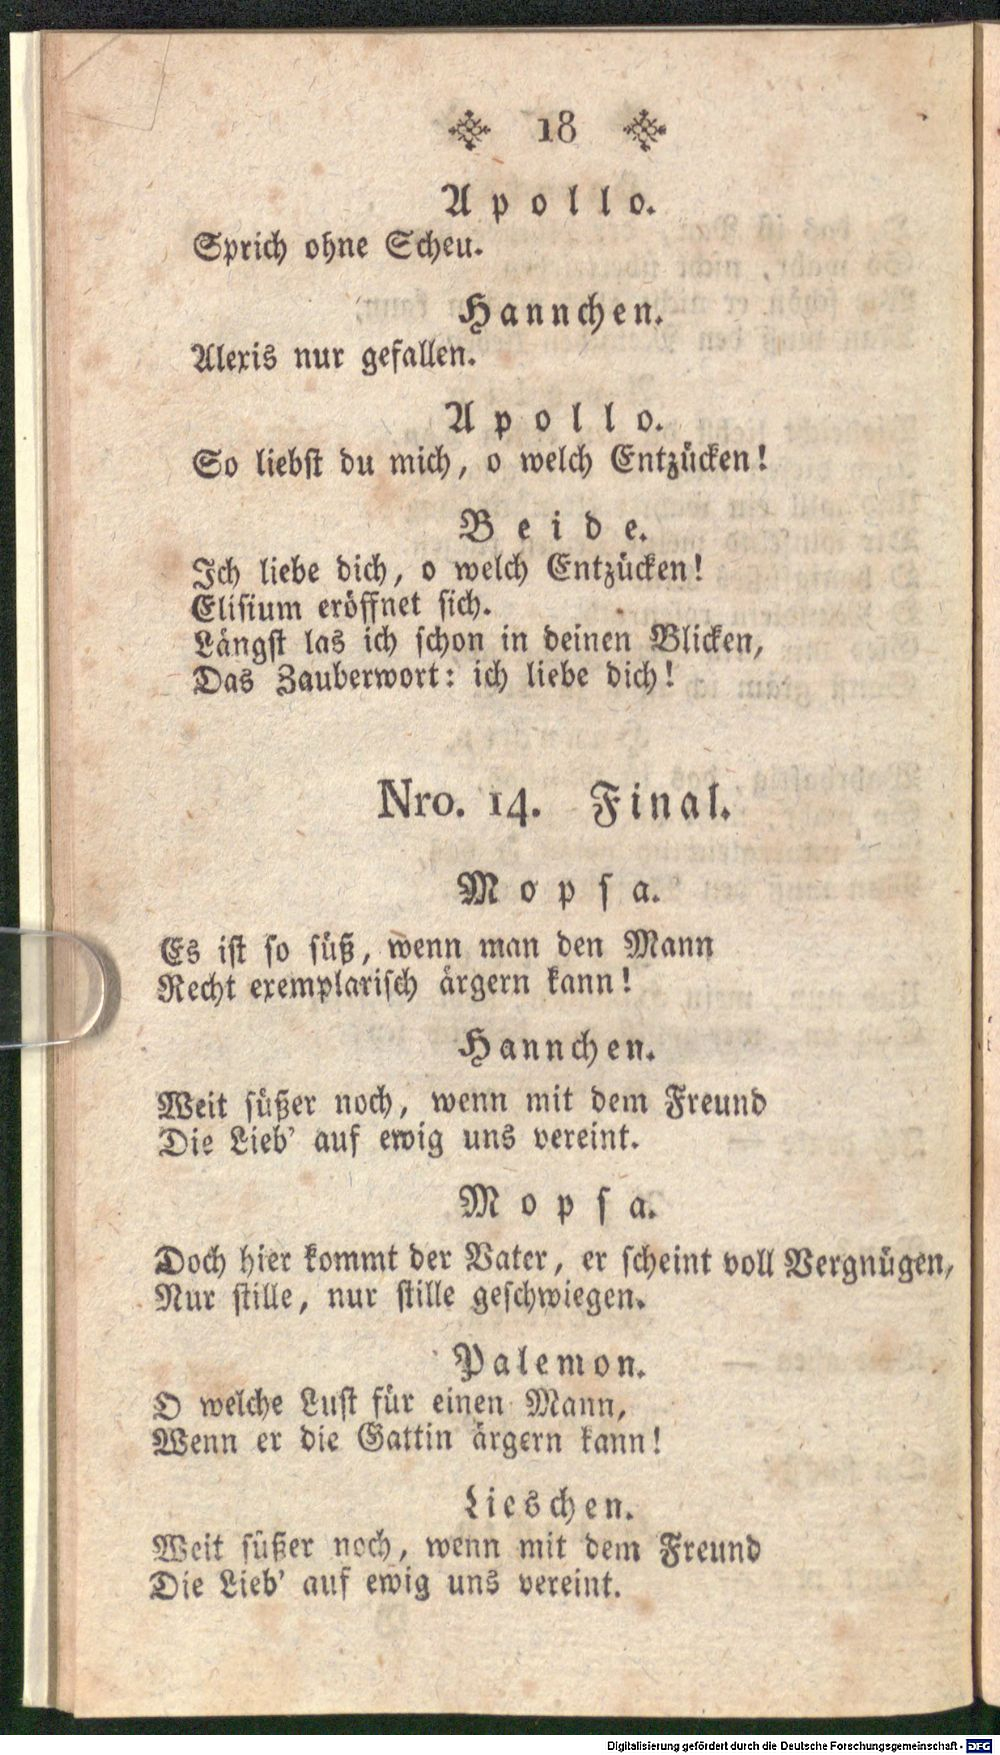 18
Apollo.
Sprich ohne Scheu.
Hannchen.
Alexis nur gefallen.
Apollo.
So liebst du mich, o welch Entzücken!
Beide.
Ich liebe dich, o welch Entzücken!
Elisium eröffnet sich.
Längst las ich schon in deinen Blicken,
Das Zauberwort: ich liebe dich!
Nro. 14. Final.
Mopsa.
Es ist so süß, wenn man den Mann
Recht exemplarisch ärgern kann!
Hannchen.
Weit süßer noch, wenn mit dem Freund
Die Lieb' auf ewig uns vereint.
Mopsa.
Doch hier kommt der Vater, er scheint voll Vergnügen,
Nur stille, nur stille geschwiegen.
Palemon.
O welche Lust für einen Mann,
Wenn er die Gattin ärgern kann!
Lieschen.
Weit süßer noch, wenn mit dem Freund
Die Lieb' auf ewig uns vereint.
Digitalisierung gefördert durch die Deutsche Forschungsgemeinschaft - DFG